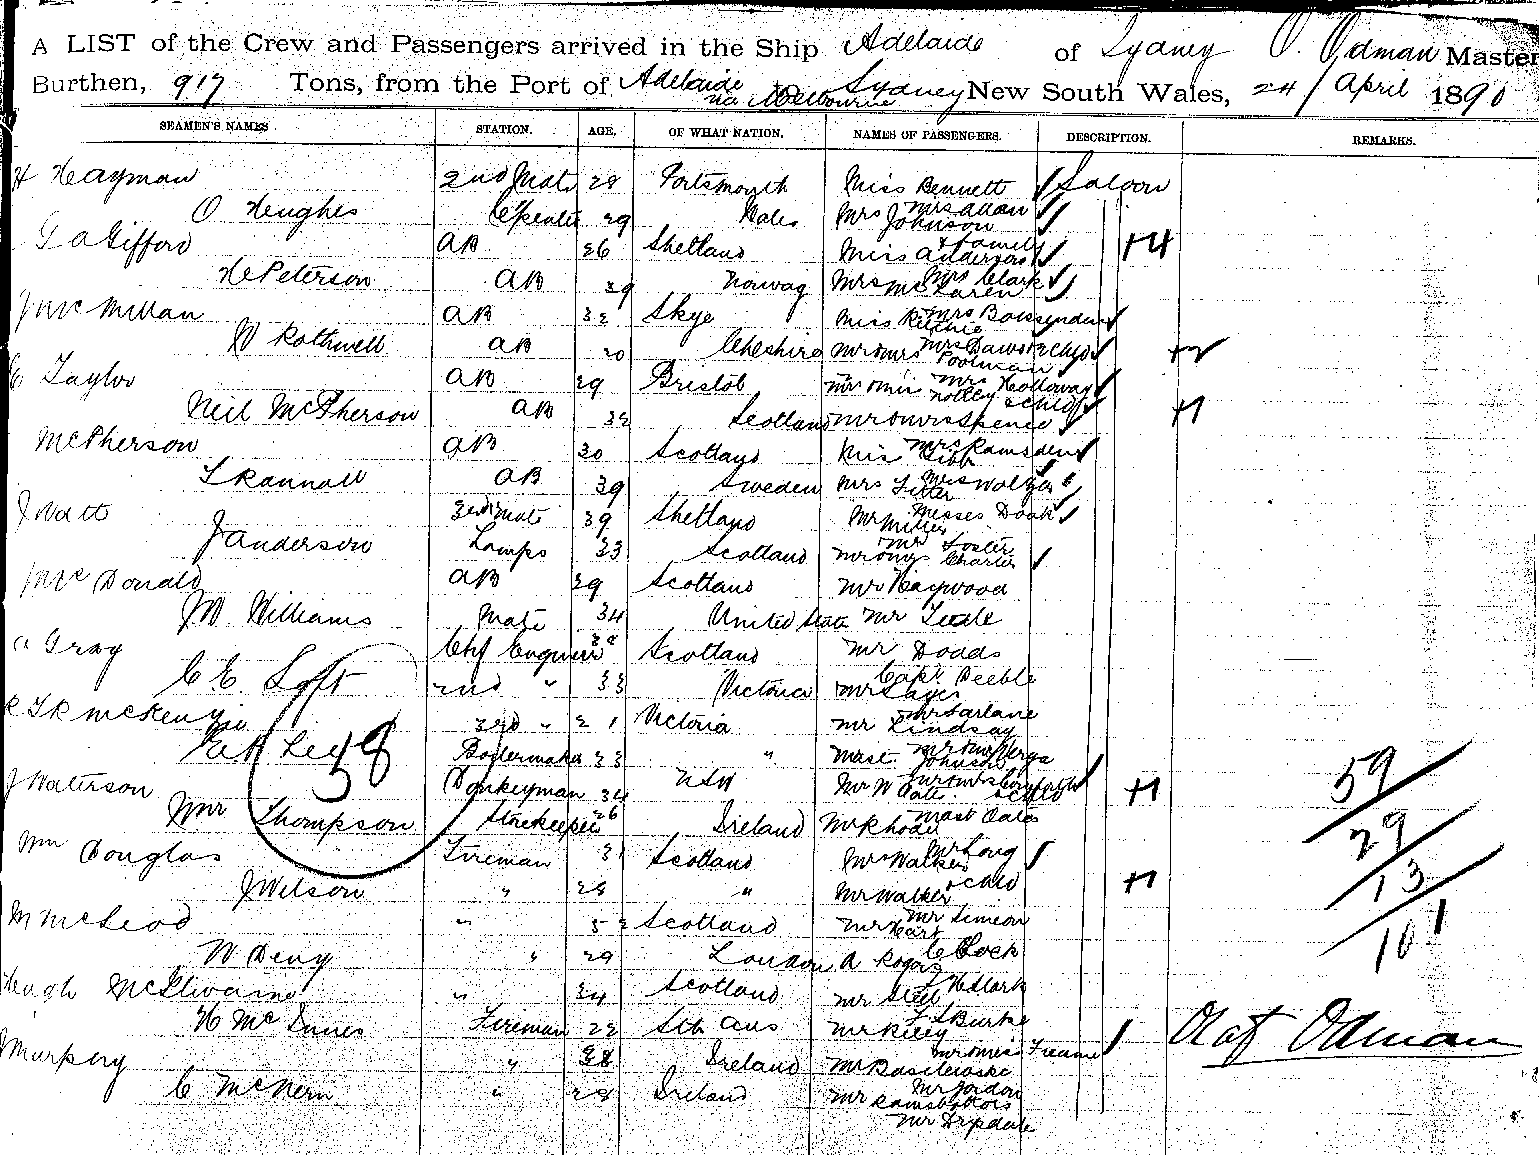 A LIST of the Crew and Passengers arrived in the Ship Adelaide of Sydney O. Odman Master
Burthen, 917 Tons, from the Port of Adelaide via Melbourne to Sydney New South Wales, 24 / April 1890
SEAMEN'S NAMES STATION. AGE, OF WHAT NATION. NAMES OF PASSENGERS. DESCRIPTION. REMARKS.
H Hayman 2nd Mate 28 Portsmouth Miss Bennett Saloon
O Hughes Cpenter 29 Wales Mrs Johnson Mrs Allan
G A Gifford AB 26 Shetland Miss Anderson & family +4
H Peterson AB 29 Norway Mrs McLaren Mrs Clark
J McMillan AB 32 Skye Miss Ritchie Mrs
W Rothwell AB 20 Cheshire Mr & Mrs Poolman Mrs Dawson & Chld +2
E Taylor AB 29 Bristol Mr & Mrs Mrs Holloway
Neil McPherson AB 32 Scotland Mr & Mrs Spence & child +1
McPherson AB 30 Scotland Miss Gibb Mrs Ramsden
AB 39 Sweden Mrs
J Watt 2nd Mate 39 Shetland Mr Miller Misses Doak
J Anderson Lamps 33 Scotland Mr Foster
McDonald AB 29 Scotland Mr Haywood
J W Williams Mate 34 United State Mr
A Gray Chf Engineer 38 Scotland Mr Dodds
C E Loft 2nd " 33 Victoria Mr Sayer Capt Peeble
McKenzie 3rd " 21 Victoria Mr Lindsay McFarlane
Lee Boilermaker 33 " Mast Johnson
J Waterson Donkeyman 34 NSW Mr W Cate & child +1
58
Wm Thompson Storekeeper 26 Ireland Mr Rhode Mast Cate
Wm Douglas Fireman 31 Scotland Mrs Walker Mr Long
J Wilson " 28 " Mr Walker & child +1
M McLeod " 52 Scotland Mr Hart Mr Simeon
W Deny " 29 London A Rogers C Cock
Hugh McIlwaine " 34 Scotland Mr Steel
H McInnes Fireman 22 Sth Aus Mr Riley Burke
Murphy " 38 Ireland Mr Mr & Miss Freame
C McKern " 28 Ireland Mr Ramsbottom Mr Gordon
Mr Drysdale
59
29
13
101
Olaf Odman